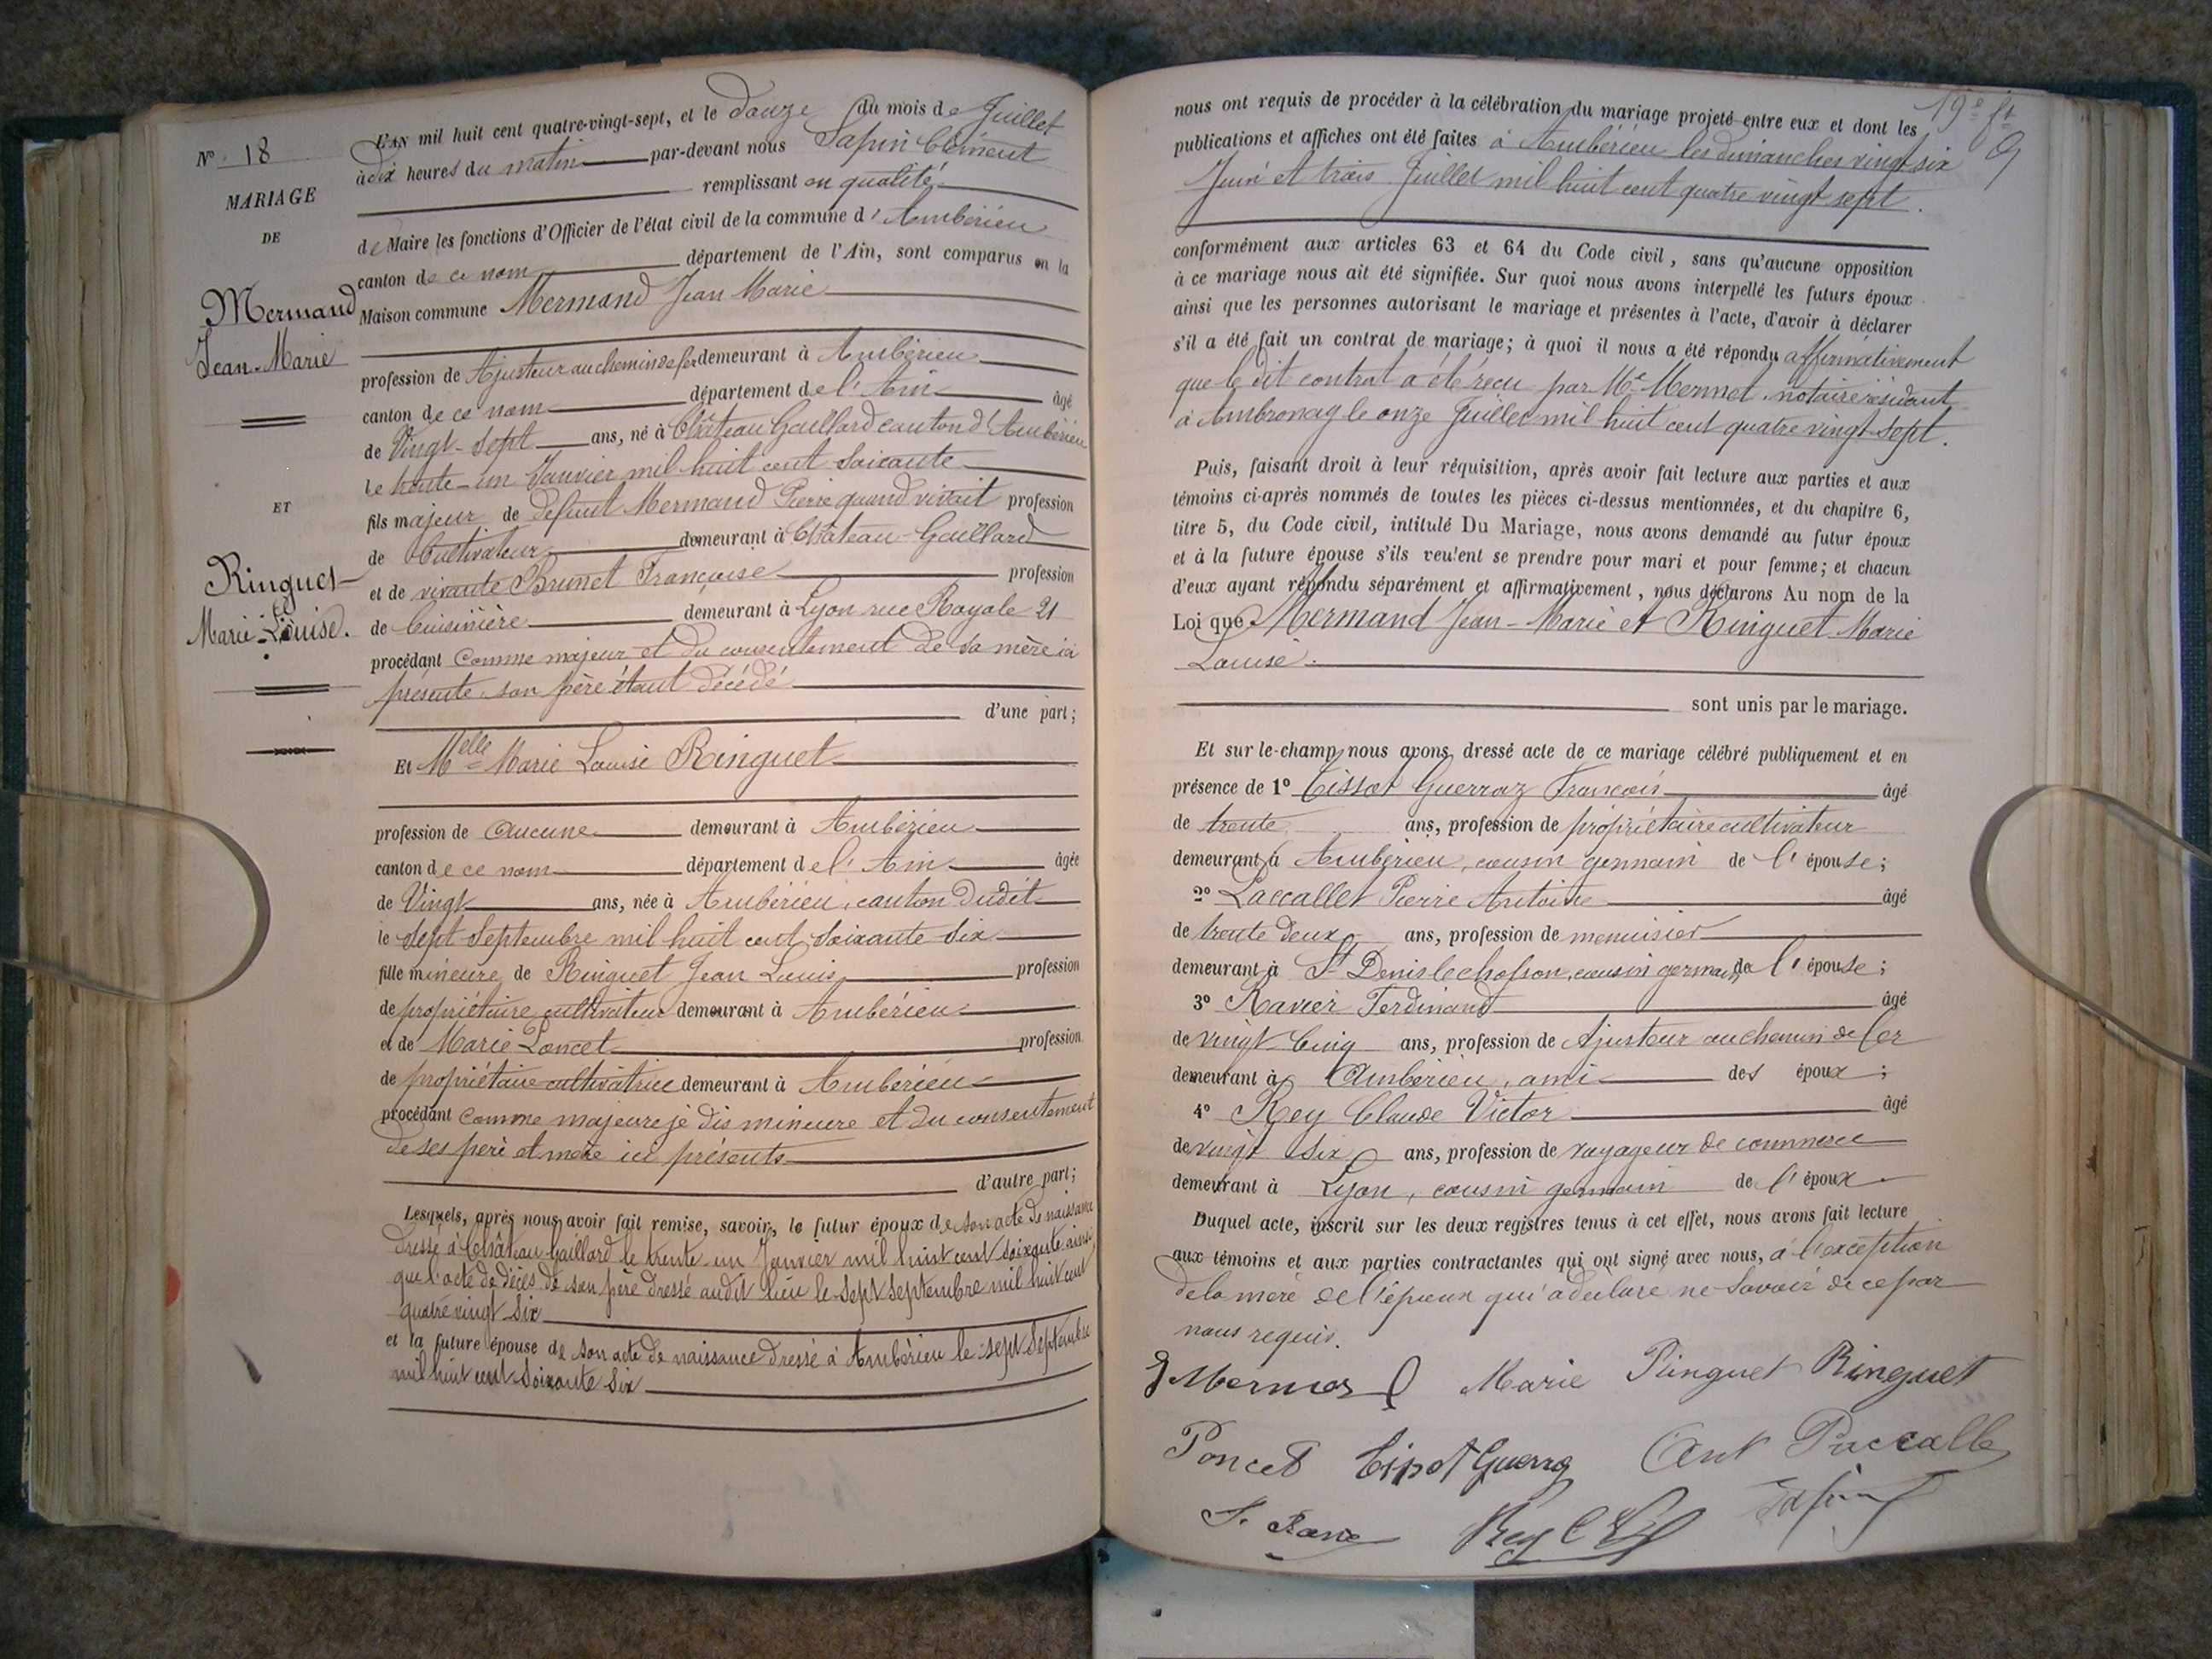 L'AN mil huit cent quatre-vingt-sept, et le douze du mois de Juillet
à dix heures du matin par-devant nous Sapin Clément
remplissant en qualité
de Maire les fonctions d'Officier de l'état civil de la commune d'Ambérieu
canton de ce nom département de l'Ain, sont comparus en la
Maison commune Mermand Jean Marie
profession de Ajusteur au chemin de fer demeurant à Ambérieu
canton de ce nom département de l'Ain âgé
de Vingt-sept ans, né à Château Gaillard canton d'Ambérieu
le trente-un Janvier mil huit cent soixante
fils majeur de défunt Mermand Pierre quand vivait profession
de Cultivateur demeurant à Château-Gaillard
et de vivante Brunet Françoise profession
de Cuisinière demeurant à Lyon rue Royale 21
procédant comme majeur et du consentement de sa mère ici
présente, son père étant décédé
d'une part;
Et Melle Marie Louise Ringuet
profession de aucune demeurant à Ambérieu
canton de ce nom département de l'Ain âgée
de Vingt ans, née à Ambérieu, canton dudit
le sept Septembre mil huit cent soixante six
fille mineure de Ringuet Jean Louis profession
de propriétaire cultivateur demeurant à Ambérieu
et de Marie Poncet profession
de propriétaire cultivatrice demeurant à Ambérieu
procédant comme majeure je dis mineure et du consentement
de ses père et mère ici présents
d'autre part;
Lesquels, après nous avoir fait remise, savoir, le futur époux de son acte de naissance
dressé à Château Gaillard le trente-un Janvier mil huit cent soixante ainsi
que l'acte de décès de son père dressé audit lieu le sept Septembre mil huit cent
quatre vingt six
et la future épouse de son acte de naissance dressé à Ambérieu le sept Septembre
mil huit cent soixante six
No 18
MARIAGE
DE
Mermand
Jean-Marie
ET
Ringuet
Marie-Louise.
19e ft
nous ont requis de procéder à la célébration du mariage projeté entre eux et dont les
publications et affiches ont été faites à Ambérieu les dimanches vingt six
Juin et trois Juillet mil huit cent quatre vingt sept.
conformément aux articles 63 et 64 du Code civil, sans qu'aucune opposition
à ce mariage nous ait été signifiée. Sur quoi nous avons interpellé les futurs époux
ainsi que les personnes autorisant le mariage et présentes à l'acte, d'avoir à déclarer
s'il a été fait un contrat de mariage; à quoi il nous a été répondu affirmativement
que le dit contrat a été reçu par Me Mermet, notaire résidant
à Ambronay le onze Juillet mil huit cent quatre vingt-sept.
Puis, faisant droit à leur réquisition, après avoir fait lecture aux parties et aux
témoins ci-après nommés de toutes les pièces ci-dessus mentionnées, et du chapitre 6,
titre 5, du Code civil, intitulé Du Mariage, nous avons demandé au futur époux
et à la future épouse s'ils veulent se prendre pour mari et pour femme; et chacun
d'eux ayant répondu séparément et affirmativement, nous déclarons Au nom de la
Loi que Mermand Jean-Marie et Ringuet Marie
Louise.
sont unis par le mariage.
Et sur-le-champ nous avons dressé acte de ce mariage célébré publiquement et en
présence de 1o Tissot Guerraz François âgé
de trente ans, profession de propriétaire cultivateur
demeurant à Ambérieu, cousin germain de l'épouse;
2o Paccallet Pierre Antoine âgé
de trente deux ans, profession de menuisier
demeurant à St Denis le chosson, cousin germain de l'épouse;
3o Ravier Ferdinand âgé
de vingt-cinq ans, profession de Ajusteur au chemin de fer
demeurant à Ambérieu, ami des époux;
4o Rey Claude Victor âgé
de vingt six ans, profession de voyageur de commerce
demeurant à Lyon, cousin germain de l'époux
Duquel acte, inscrit sur les deux registres tenus à cet effet, nous avons fait lecture
aux témoins et aux parties contractantes qui ont signé avec nous, à l'exception
de la mère de l'époux qui a déclaré ne savoir de ce par
nous requis.
Marie Ringuet Ringuet
Poncet Tissot Guerra Ant Paccalle
Rey